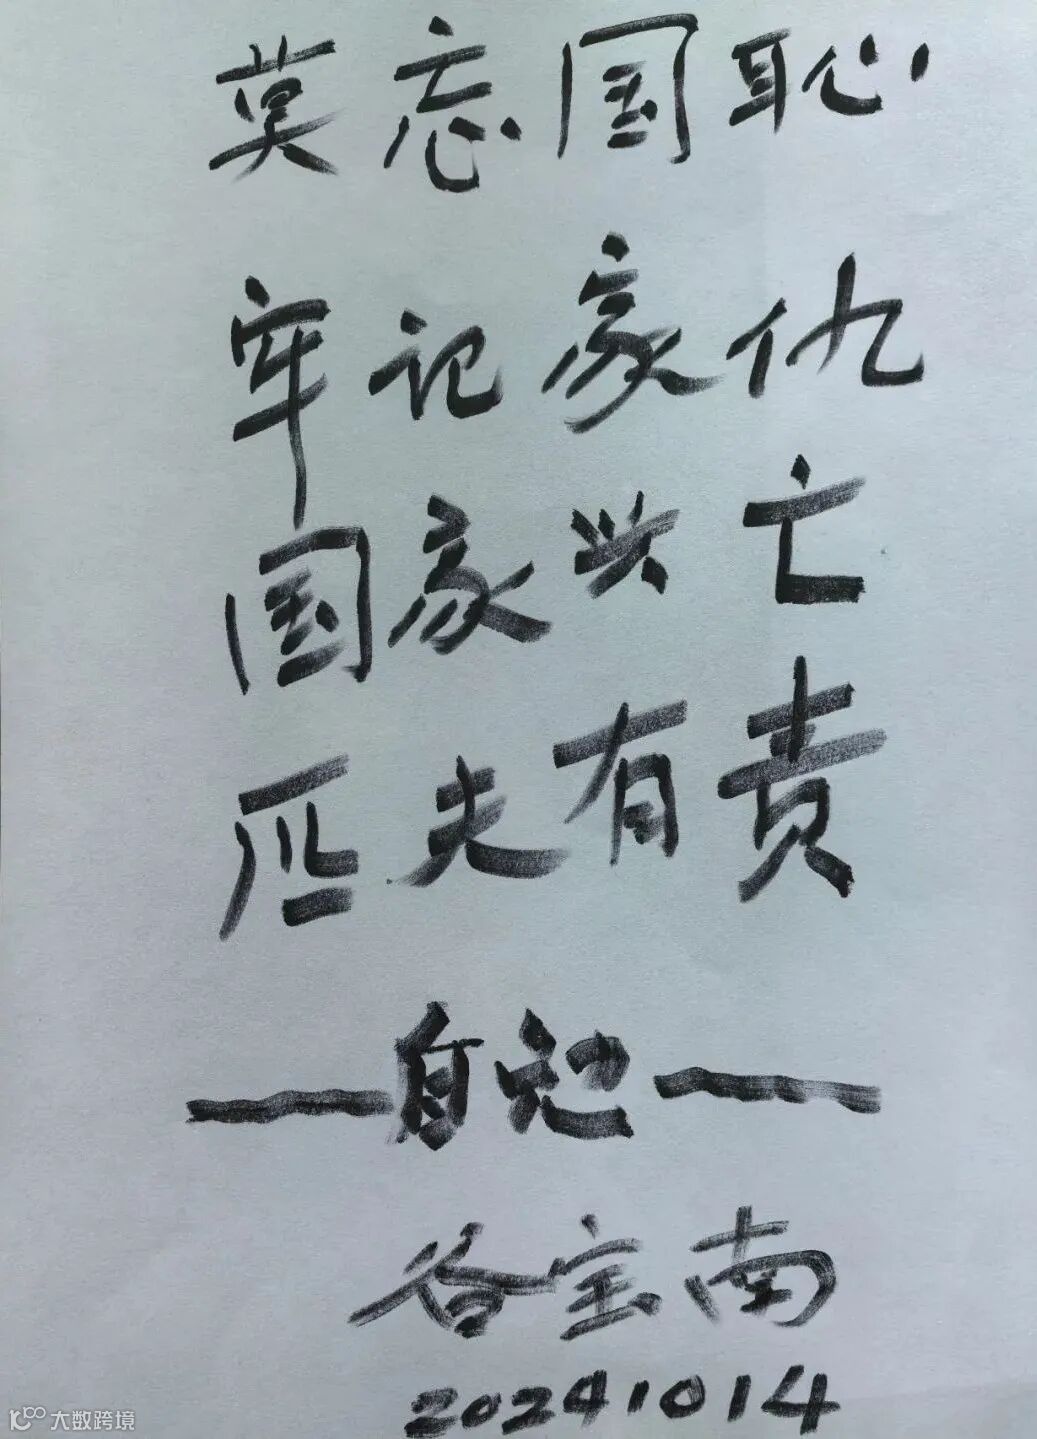 莫忘国耻
牢记家仇
国家兴亡
匹夫有责
——自勉——
谷宝南
20241014
大数跨境